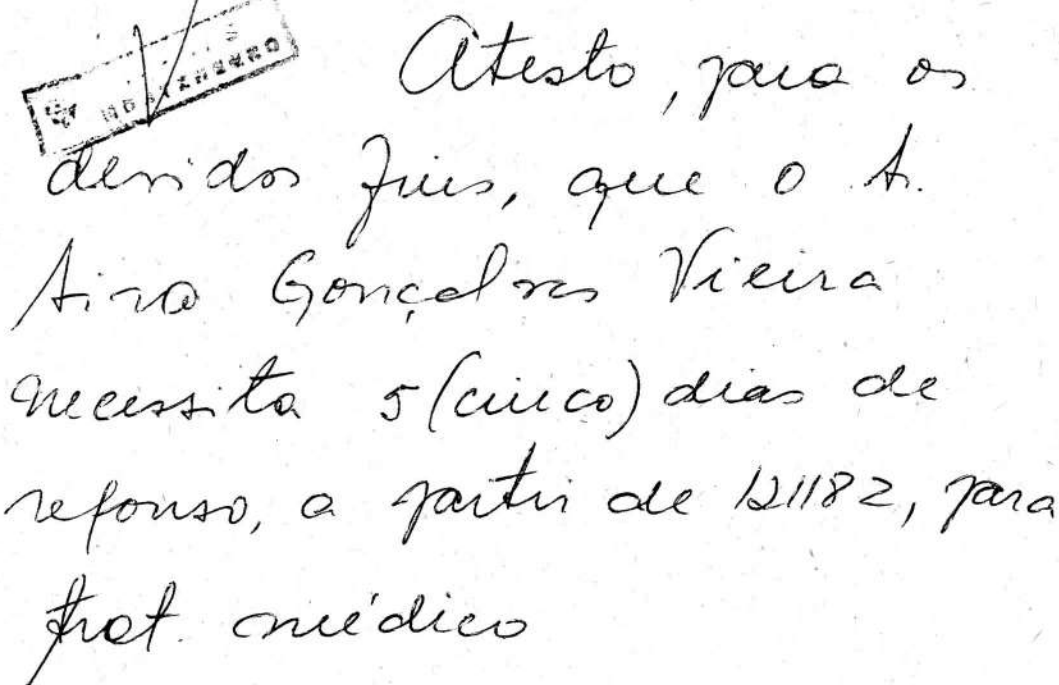 Atesto, para os
devidos fins, que o Sr.
Gonçalves Vieira
necessita 5 (cinco) dias de
repouso, a partir de para
trat. médico